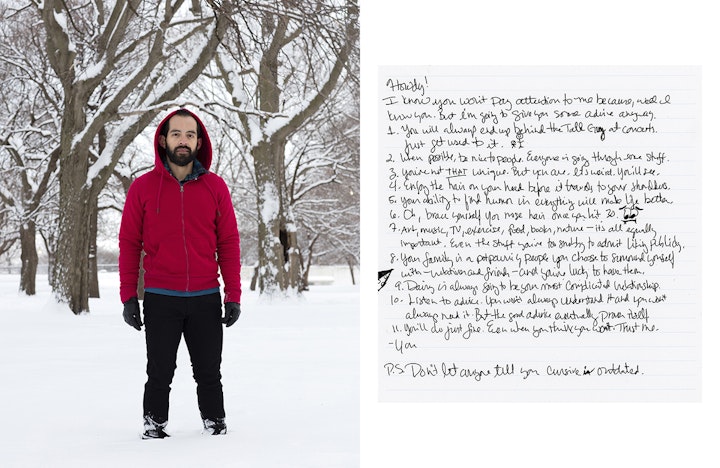 Howdy!
I know you won't pay attention to me because, well I
know you. But I'm going to give you some advice anyway.
1. You will always end up behind the Tall Guy at concerts.
Just get used to it.
2. When possible, be nice to people. Everyone is going through some stuff.
3. You're not THAT unique. But you are. It's weird. You'll see.
4. Enjoy the hair on your head before it travels to your shoulders.
5. Your ability to find humor in everything will make life better.
6. Oh, brace yourself for more hair once you hit 30.
7. Art, music, TV, exercise, food, books, nature - it's all equally
important. Even the stuff you're too snobby to admit liking publicly.
8. Your family is a potpourri of people you choose to surround yourself
with - relatives and friends - and you're lucky to have them.
9. Dairy is always going to be your most complicated relationship.
10. Listen to advice. You won't always understand it and you won't
always need it. But the good advice eventually proves itself
11. You'll do just fine. Even when you think you won't. Trust me.
-You
P.S. Don't let anyone tell you cursive is outdated.